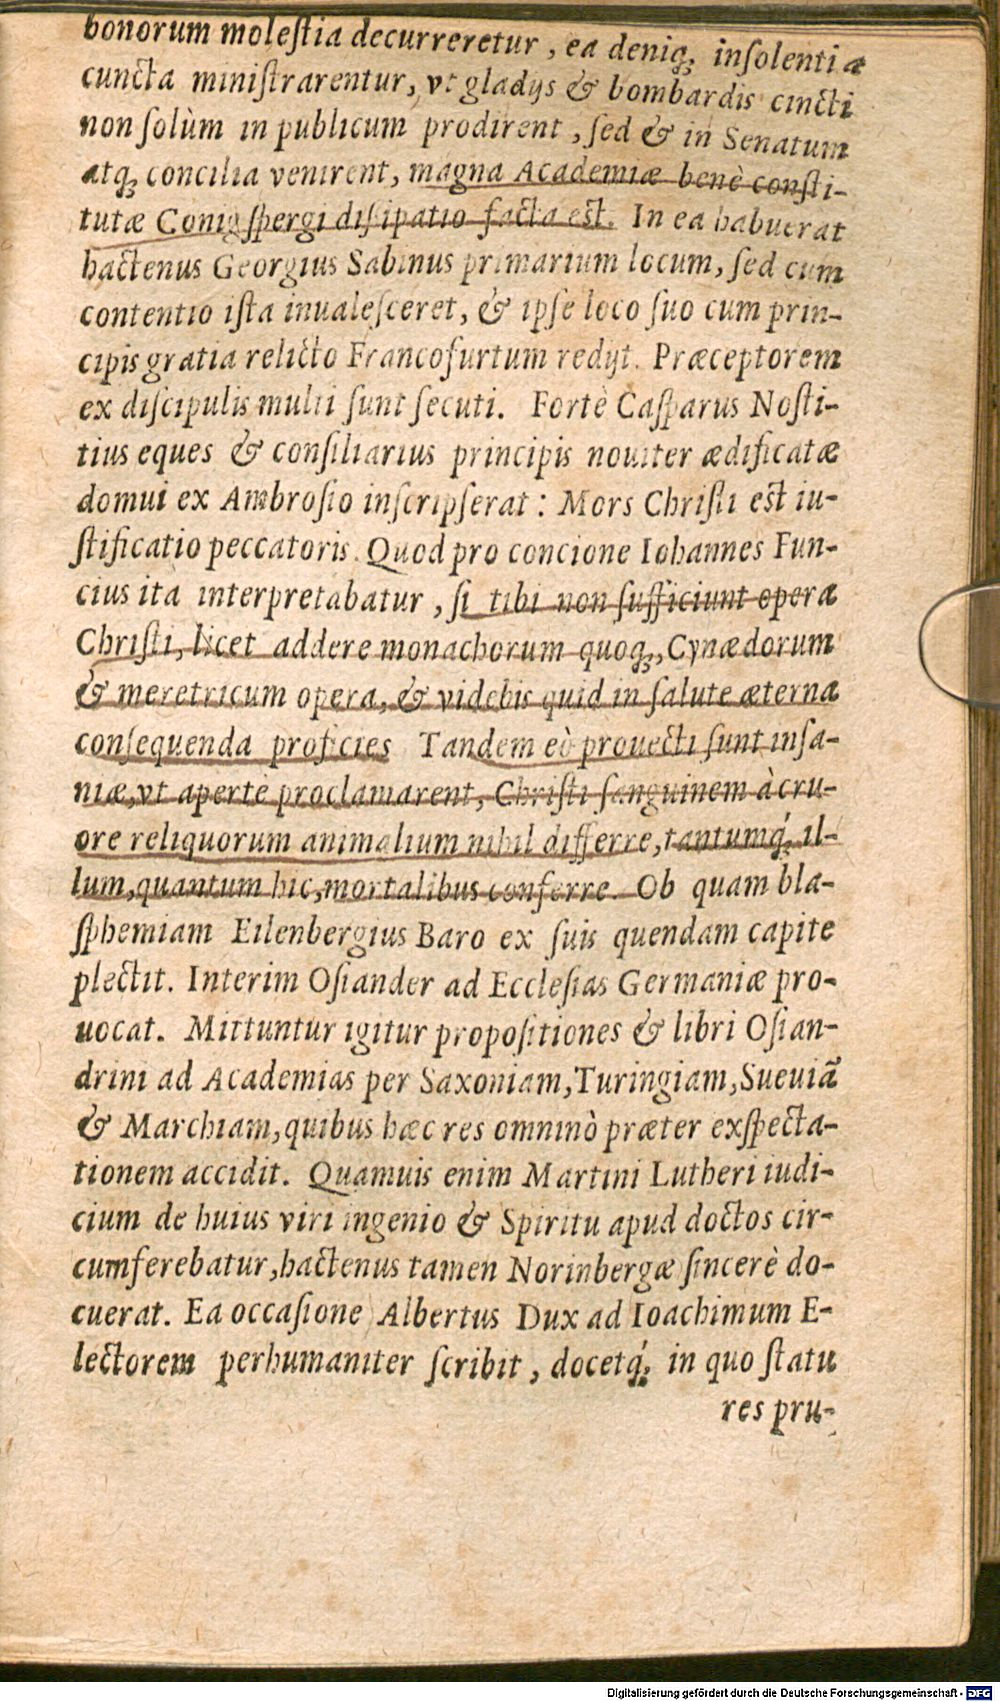 bonorum molestia decurreretur, ea deniq; insolentia
cuncta ministrarentur, vt gladijs & bombardis cincti
non solùm in publicum prodirent, sed & in Senatum
atq; concilia venirent, magna Academiæ benè consti-
tutæ Conigspergi disipatio facta est. In ea habuerat
hactenus Georgius Sabinus primarium locum, sed cum
contentio ista inualesceret, & ipse loco suo cum prin-
cipis gratia relicto Francofurtum redijt. Præceptorem
ex discipulis multi sunt secuti. Fortè Casparus Nosti-
tius eques & consiliarius principis nouiter ædificatæ
domui ex Ambrosio inscripserat: Mors Christi est iu-
stificatio peccatoris. Quod pro concione Iohannes Fun-
cius ita interpretabatur, si tibi non sufficiunt opera
Christi, licet addere monachorum quoq;, Cynædorum
& meretricum opera, & videbis quid in salute æterna
consequenda proficies Tandem eò prouecti sunt insa-
niæ, vt apertè proclamarent, Christi sanguinem à cru-
ore reliquorum animalium nihil differre, tantumq́; il-
lum, quantum hic, mortalibus conferre. Ob quam bla-
sphemiam Eilenbergius Baro ex suis quendam capite
plectit. Interim Osiander ad Ecclesias Germaniæ pro-
uocat. Mittuntur igitur propositiones & libri Osian-
drini ad Academias per Saxoniam, Turingiam, Sueuiã
& Marchiam, quibus hæc res omninò præter exspecta-
tionem accidit. Quamuis enim Martini Lutheri iudi-
cium de huius viri ingenio & Spiritu apud doctos cir-
cumferebatur, hactenus tamen Norinbergæ sincerè do-
cuerat. Ea occasione Albertus Dux ad Ioachimum E-
lectorem perhumaniter scribit, docetq́; in quo statu
res pru-
Digitalisierung gefördert durch die Deutsche Forschungsgemeinschaft - DFG